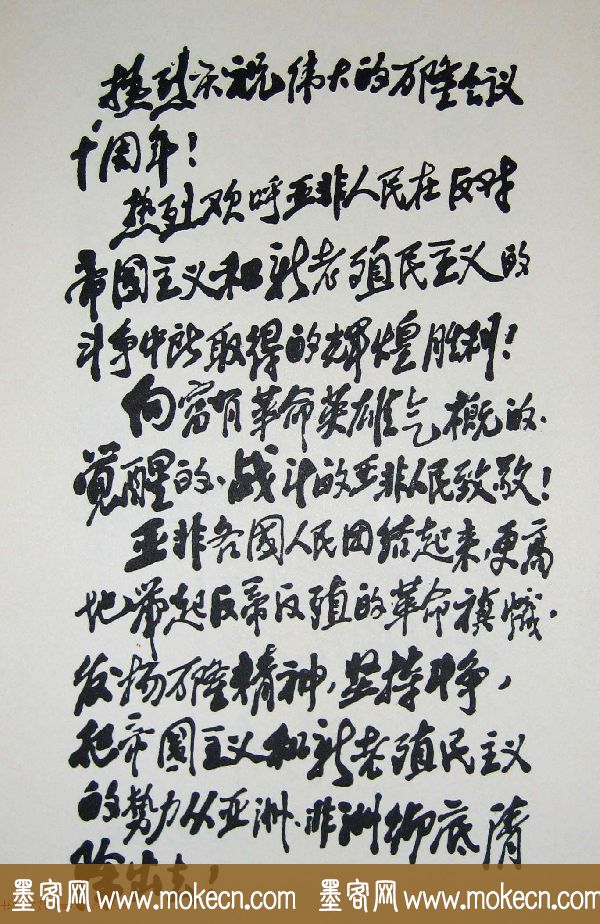 热烈庆祝伟大的万隆会议
十周年！
热烈欢呼亚非人民在反对
帝国主义和新老殖民主义的
斗争中所取得的辉煌胜利！
向富有革命英雄气概的、
觉醒的、战斗的亚非人民致敬！
亚非各國人民团结起来，更高
地举起反帝反殖的革命旗帜，
发扬万隆精神，坚持斗争，
把帝國主义和新老殖民主义
的势力从亚洲、非洲彻底清
除出去！
墨客网 www.mokecn.com 墨客网 www.mokecn.com